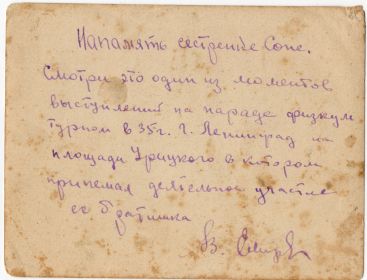 На память сестренке Соне.
Смотри это один из моментов
выступлений на параде физкуль
турном в 35г. г. Ленинград на
площади Урицкого в котором
принемал деятельное участие
ее братишка
В.